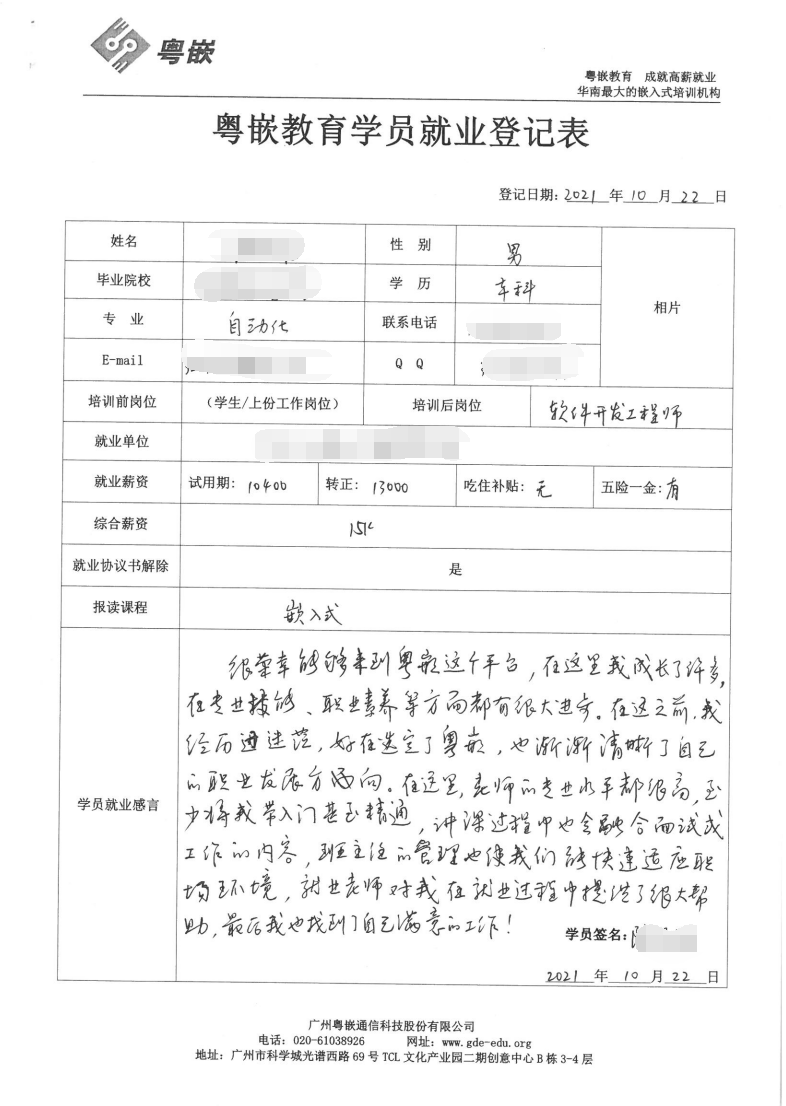 粤嵌
粤嵌教育 成就高薪就业
华南最大的嵌入式培训机构
粤嵌教育学员就业登记表
登记日期: 2021 年 10 月 22 日
姓名 性 别 男
毕业院校 学 历 本科
专 业 自动化 联系电话
相片
E-mail Q Q
培训前岗位 (学生/上份工作岗位) 培训后岗位 软件开发工程师
就业单位
就业薪资 试用期: 10400 转正: 13000 吃住补贴: 无 五险一金: 有
综合薪资 15k
就业协议书解除 是
报读课程 嵌入式
学员就业感言
很荣幸能够来到粤嵌这个平台,在这里我成长了许多,
在专业技能、职业素养等方面都有很大进步。在这之前,我
经历过迷茫,好在选定了粤嵌,也渐渐清晰了自己
的职业发展方向。在这里,老师的专业水平都很高,至
少将我带入门甚至精通,讲课过程中也会融合面试或
工作的内容,班主任的管理也使我们能快速适应职
场环境,就业老师对我在就业过程中提供了很大帮
助,最后我也找到了自己满意的工作!
学员签名:
2021 年 10 月 22 日
广州粤嵌通信科技股份有限公司
电话: 020-61038926 网址: www.gde-edu.org
地址: 广州市科学城光谱西路 69 号 TCL 文化产业园二期创意中心 B 栋 3-4 层